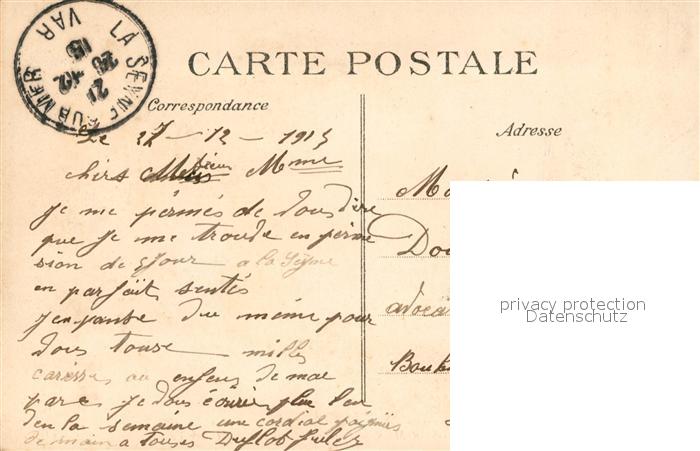 LA SEYNE SUR MER
VAR
21
12
15
CARTE POSTALE
Correspondance
Adresse
Le 27 - 12 - 1915
chers Mme
je me pérmés de vous dire
que je me trouve en pérmi
sion de 9 jour a la Séyne
en parfait sentés
j en panse du méme pour
vous touse milles
caresses au enfens de moe
par e je vous écurié plus
den la semaine une cordial poignés
de main a touses Duflot Jules
Do
avoca
Bou
privacy protection
Datenschutz